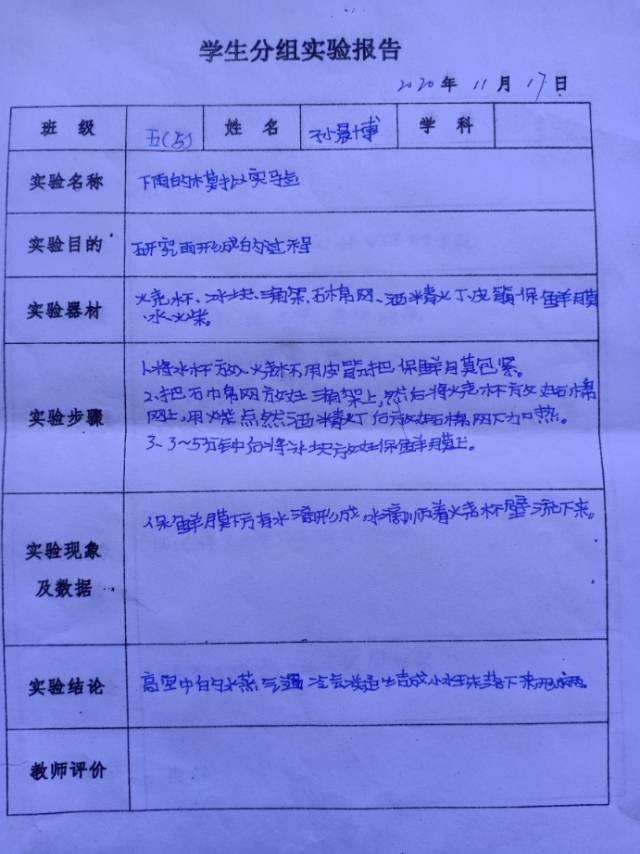 学生分组实验报告
2020年11月17日
班级 五(5) 姓名 孙晨博 学科
实验名称 下雨的模拟实验
实验目的 研究雨形成的过程
实验器材 烧杯、冰块、三角架、石棉网、酒精灯、皮筋、保鲜膜
水、火柴。
实验步骤
1、将水杯放、烧杯、用皮筋把保鲜膜包紧。
2、把石棉网放在三角架上,然后将烧杯放在石棉
网上,用火柴点然酒精灯后放在石棉网下加热。
3、3~5分钟后将冰块放在保鲜膜上。
实验现象
及数据
保鲜膜下方有水滴形成,水滴顺着烧杯壁流下来。
实验结论 高空中的水蒸气遇冷气凝结成小水珠落下来形成雨。
教师评价